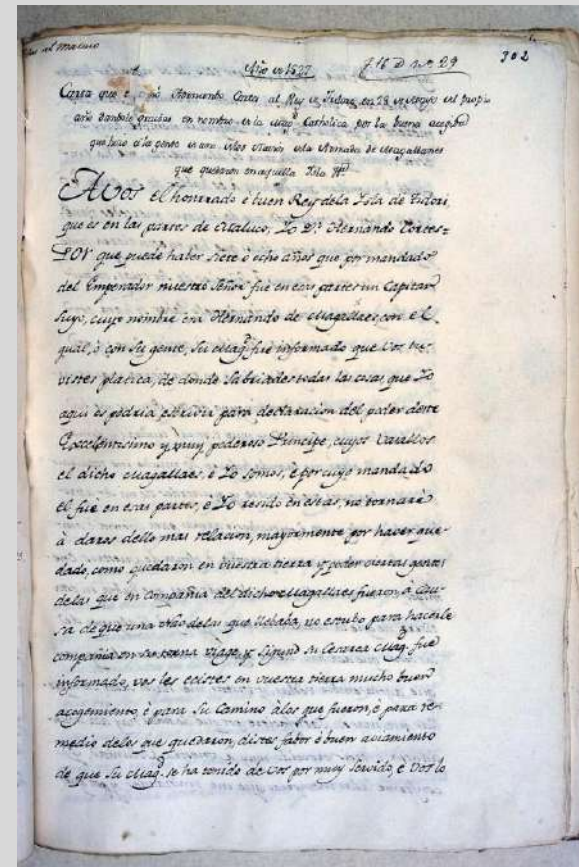 al Maluco
Año de 1527
n.º 29
302
Carta que escribió Hernando Cortes al Rey de Tidore, en 28 de Mayo del propio
año dandole gracias en nombre de la Mag.d Catholica por la buena acogida
que hizo a la gente de una de las Naos de la Armada de Magallanes
que quedaron en aquella Isla
A Vos el honrrado è buen Rey dela Isla de Tidori,
que es en las partes de Maluco, Yo D.n Hernando Cortes=
Por que puede haber siete ò ocho años que por mandado
del Emperador nuestro Señor fue en esas partes un Capitan
suyo, cuyo nombre era Hernando de Magallaes, con el
qual, ò con su gente, su Mag.d fue informado que Vos tu-
vistes platica, de donde sabriades todas las cosas que Yo
aqui os podria escrivir para declaracion del poder deste
Excelentisimo y muy poderoso Principe, cuyos Vasallos
el dicho Magallaes, è Yo somos, è por cuyo mandado
el fue en esas partes, è Yo resido en estas, no tornarè
à daros dello mas relacion, mayormente por haver que-
dado, como quedaron en vuestra tierra y poder ciertas gentes
delas que en Compañia del dicho Magallaes fueron, à Cau-
sa de que una Não delas que llebaba, no estubo para hacerle
compañia en su torna viage, y segund su Cesarea Mag.d fue
informado, vos les ecistes en vuestra tierra mucho buen
acogimiento, è para su Camino à los que fueron, è para re-
medio delos que quedaron, distes fabor è buen aviamiento
de que su Mag.d se ha tenido de vos por muy servido, è Vos lo